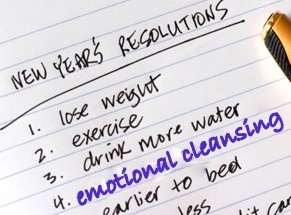 NEW YEAR'S RESOLUTIONS
1. lose weight
2. exercise
3. drink more water
4. emotional cleansing
earlier to bed
less